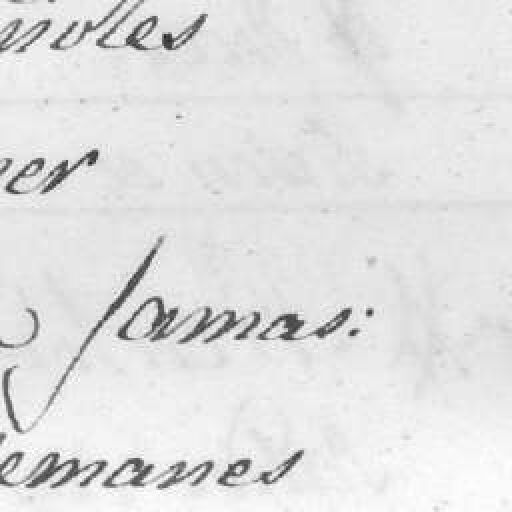 noles
er
Jamas:
lemanes